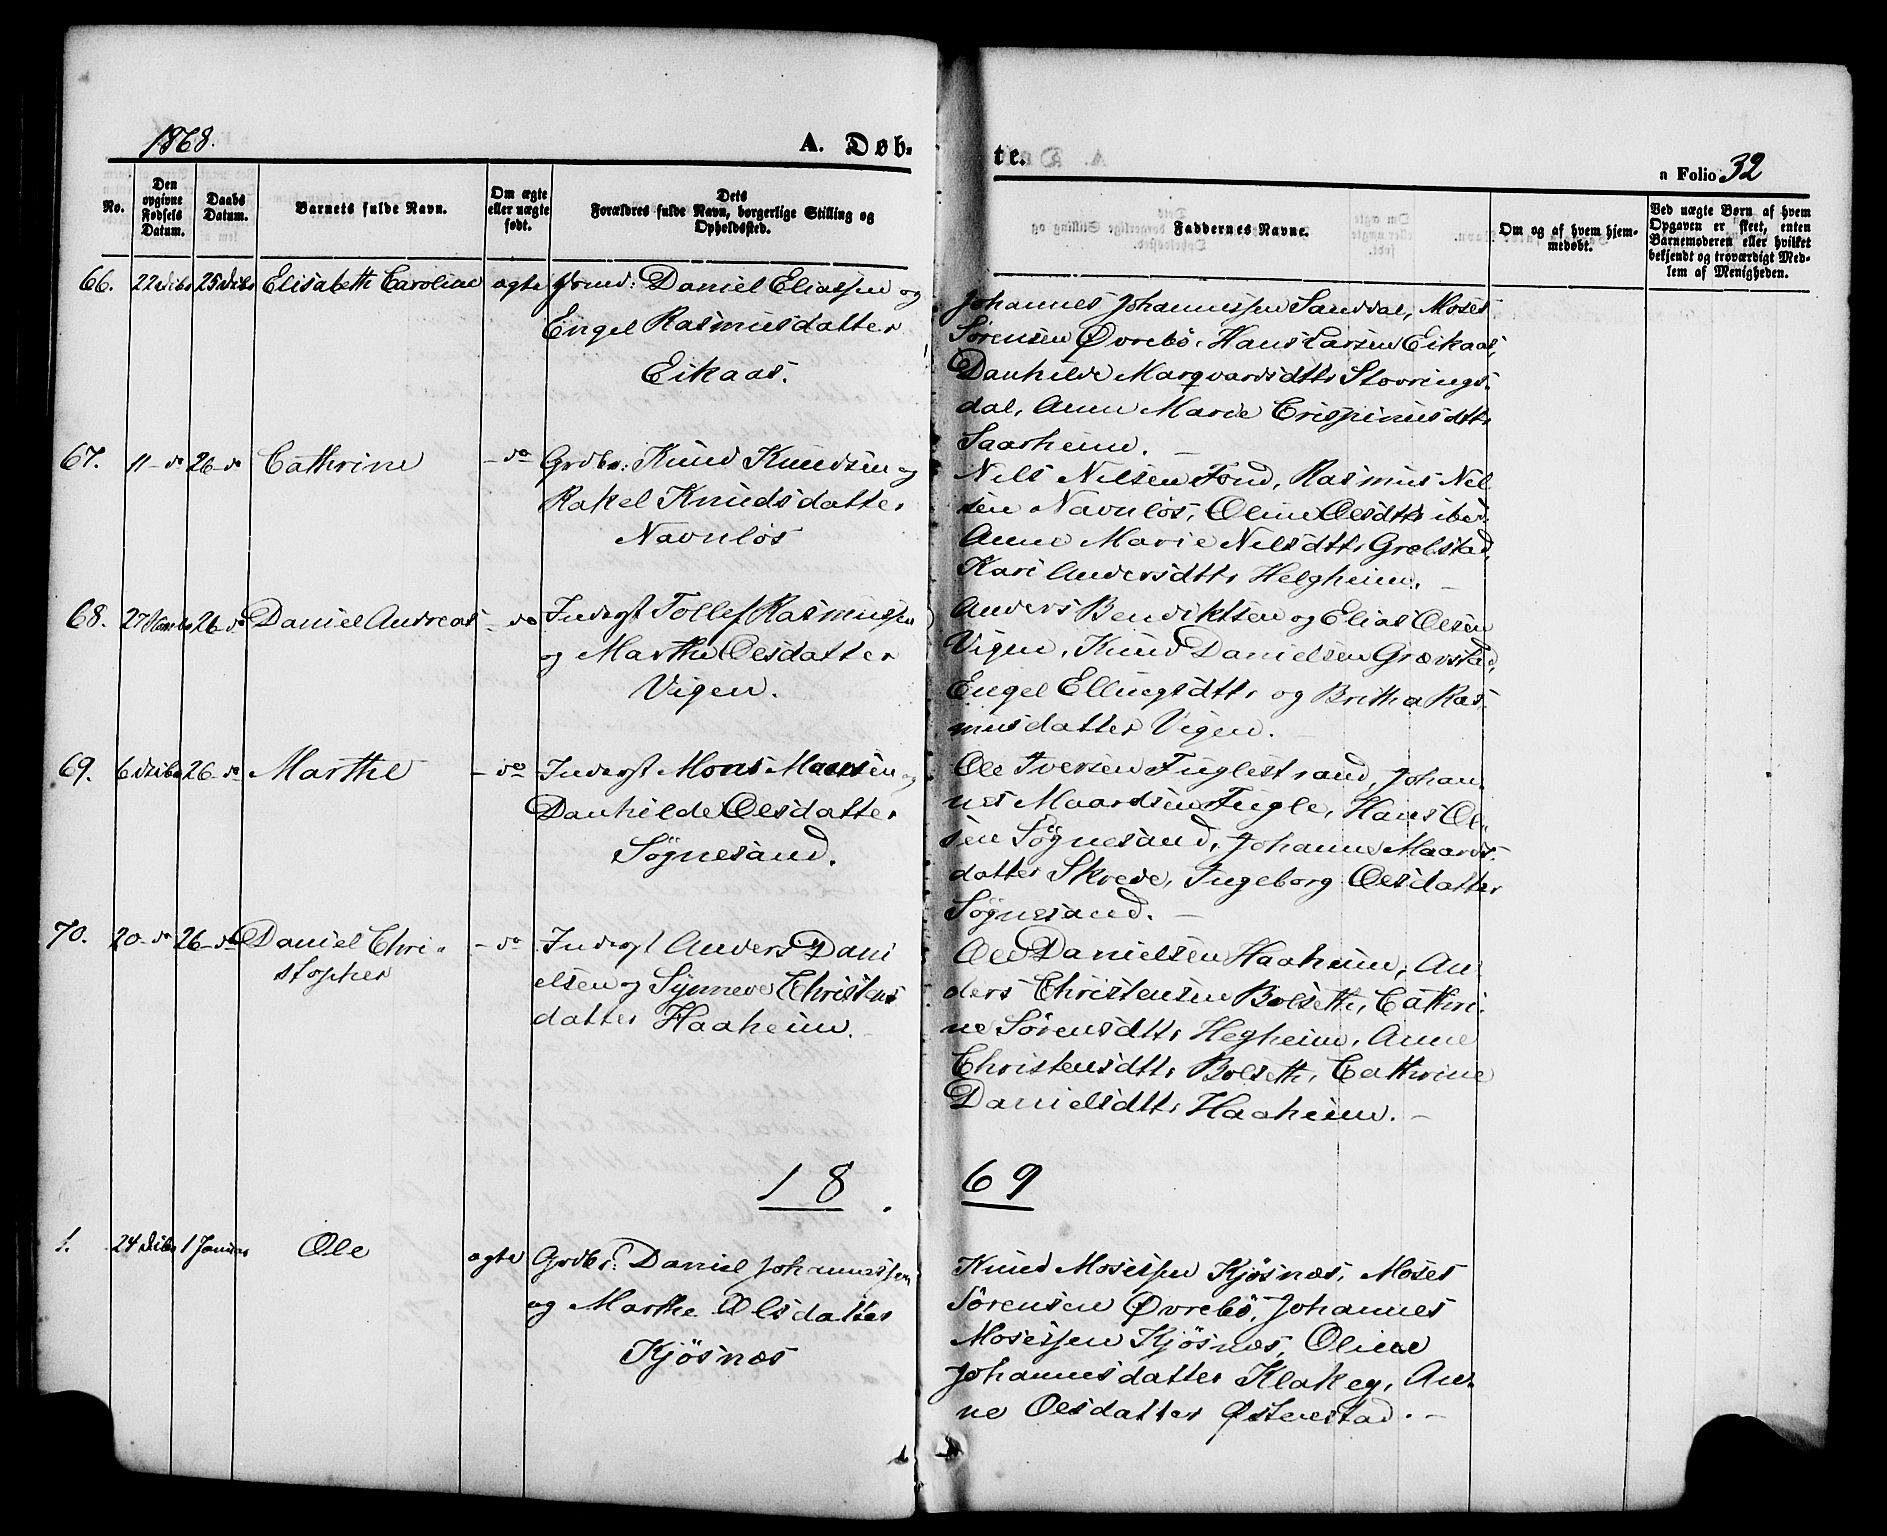 1868.
A. Døb-
te.
n Folio 32
No.
Den opgivne Fødsels Datum.
Daabs Datum.
Barnets fulde Navn.
Om ægte eller uægte født.
Dets Forældres fulde Navn, borgerlige Stilling og Opholdssted.
Faddernes Navne.
Om og af hvem hjem-
medøbt.
Ved uægte Børn af hvem
Opgaven er skeet, enten
Barnemoderen eller hvilket
bekjendt og troværdigt Med-
lem af Menigheden.
66. 22 dcbr 25 dcbr Elisabeth Caroline ægte Daniel Eliassen og
Engel Rasmusdatter
Eikaas.
Johannes Johannessen Sanddal, Moses
Sørensen Øvrebö, Hans Larsen Eikaas,
Danhilde Marqvardsdtr Stovrings-
dal, Anne Marie Crispinusdtr
Saarheim. —
67. 11 - do 26 - do Cathrine - do Grdbr: Knud Knudsen og
Rakel Knudsdatter
Navnlös
Nils Nilsen Fond, Rasmus Nil-
sen Navnlös, Oline Olsdtr ibid:
Anne Marie Nilsdtr Græbstad,
Kari Andersdtr Helgheim. —
68. 27 Novbr 26 - do Daniel Andreas - do Inderst Tollef Rasmussen
og Marthe Olsdatter
Vigen.
Anders Bendiktsen og Elias Olsen
Vigen, Knud Danielsen Grævstad,
Engel Ellingsdtr og Britha Ras-
musdatter Vigen. —
69. 6 dcbr 26 - do Marthe - do Inderst Mons Monsen og
Danhilde Olsdatter
Søgnesand.
Ole Iversen Fuglestrand, Johan-
nes Maardsen Fugle, Hans Ol-
sen Søgnesand, Johanne Maards-
datter Skrede, Ingeborg Olsdatter
Søgnesand. —
70. 20 - do 26 - do Daniel Chri-
stopher - do Inderst Anders Dani
elsen og Synneve Christens
datter Haaheim.
Ole Danielsen Haaheim, An-
ders Christensen Bolseth, Cathri-
ne Sørensdtr Hegheim, Anne
Christensdtr Bolseth, Cathrine
Danielsdtr Haaheim. —
18 69
1. 24 dcbr 1 Januar Ole ægte Grdbr: Daniel Johannessen
og Marthe Olsdatter
Kjösnæs
Knud Mosessen Kjösnæs, Moses
Sørensen Øvrebö, Johannes
Mosessen Kjösnæs, Oline
Johannesdatter Klakeg, An-
ne Olsdatter Østenstad. —